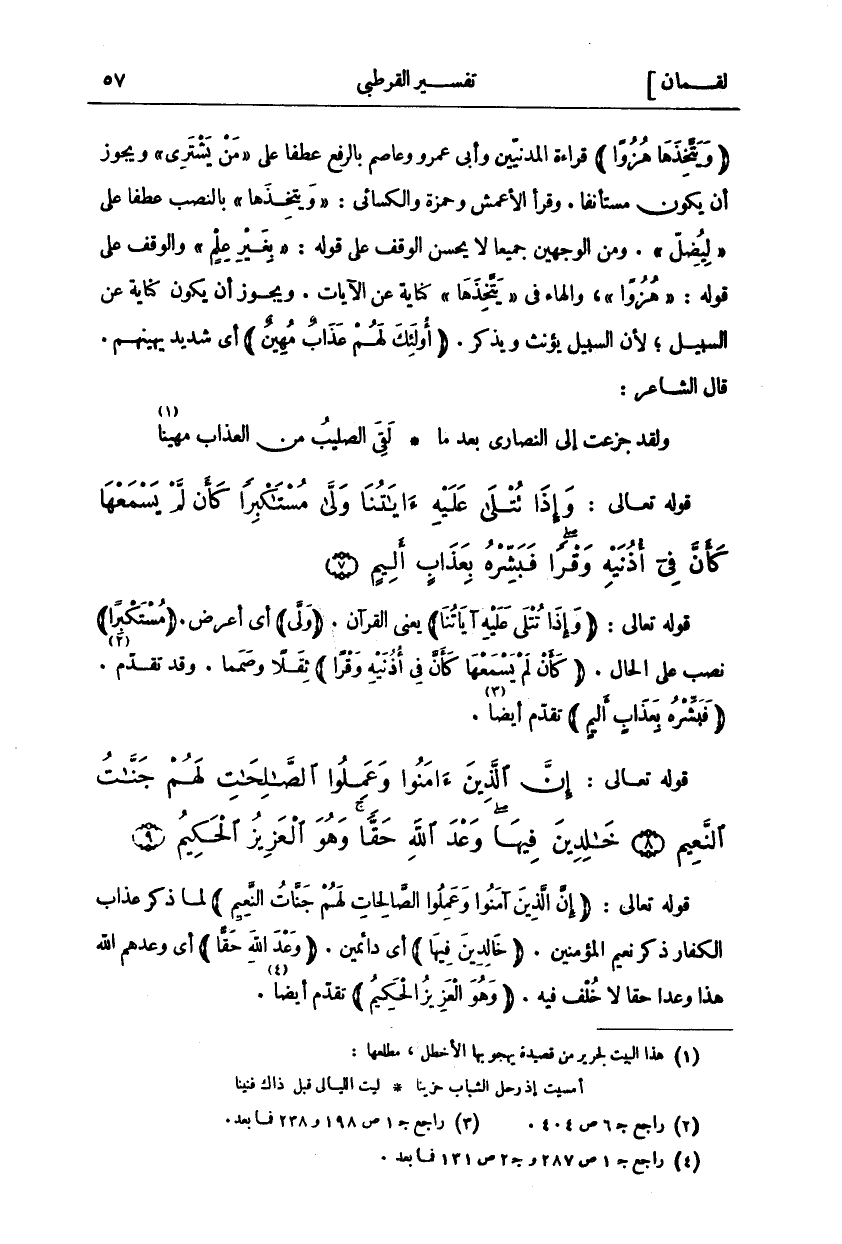 لقمان ] تفسير القرطبى ٥٧
﴿ وَيَتَّخِذَهَا هُزُوًا ﴾ قراءة المدنيّين وأبى عمرو وعاصم بالرفع عطفا على «مَنْ يَشْتَرِى» ويجوز
أن يكون مستأنفا . وقرأ الأعمش وحمزة والكسائى : « وَيتخِذَها » بالنصب عطفا على
« لِيُضِلّ » . ومن الوجهين جميعا لا يحسن الوقف على قوله : « بِغَيْرِ عِلْمٍ » والوقف على
قوله : « هُزُوًا »، والهاء فى « يَتَّخِذَهَا » كناية عن الآيات . ويجوز أن يكون كناية عن
السبيل ؛ لأن السبيل يؤنث ويذكر . ﴿ أُولَئِكَ لَهُمْ عَذَابٌ مُهِينٌ ﴾ أى شديد يهينهم .
قال الشاعر :
ولقد جزعت إلى النصارى بعد ما * لَقِىَ الصليبُ من العذاب مهينا (١)
قوله تعالى : وَإِذَا تُتْلَىٰ عَلَيْهِ ءَايَٰتُنَا وَلَّىٰ مُسْتَكْبِرًا كَأَن لَّمْ يَسْمَعْهَا
كَأَنَّ فِىٓ أُذُنَيْهِ وَقْرًاۖ فَبَشِّرْهُ بِعَذَابٍ أَلِيمٍ ﴿٧﴾
قوله تعالى : ﴿ وَإِذَا تُتْلَى عَلَيْهِ آيَاتُنَا﴾ يعنى القرآن . ﴿وَلَّى﴾ أى أعرض. ﴿مُسْتَكْبِرًا﴾
نصب على الحال . ﴿ كَأَنْ لَمْ يَسْمَعْهَا كَأَنَّ فِى أُذُنَيْهِ وَقْرًا ﴾ ثِقَلًا وصَمَما . وقد تقدّم (٢) .
﴿ فَبَشِّرْهُ بِعَذَابٍ أَلِيمٍ ﴾ تقدّم أيضا (٣) .
قوله تعالى : إِنَّ ٱلَّذِينَ ءَامَنُوا وَعَمِلُوا ٱلصَّٰلِحَٰتِ لَهُمْ جَنَّٰتُ
ٱلنَّعِيمِ ﴿٨﴾ خَٰلِدِينَ فِيهَاۖ وَعْدَ ٱللَّهِ حَقًّاۚ وَهُوَ ٱلْعَزِيزُ ٱلْحَكِيمُ ﴿٩﴾
قوله تعالى : ﴿ إِنَّ الَّذِينَ آمَنُوا وَعَمِلُوا الصَّالِحَاتِ لَهُمْ جَنَّاتُ النَّعِيمِ ﴾ لما ذكر عذاب
الكفار ذكر نعيم المؤمنين . ﴿ خَالِدِينَ فِيهَا ﴾ أى دائمين . ﴿ وَعْدَ اللهِ حَقًّا ﴾ أى وعدهم الله
هذا وعدا حقا لا خُلْف فيه . ﴿ وَهُوَ الْعَزِيزُ الْحَكِيمُ ﴾ تقدّم أيضا (٤) .
(١) هذا البيت لجرير من قصيدة يهجو بها الأخطل ، مطلعها :
أمسيت إذ رحل الشباب حزينا * ليت الليالى قبل ذاك فنينا
(٢) راجع جـ ٦ ص ٤٠٤ . (٣) راجع جـ ١ ص ١٩٨ و ٢٣٨ فما بعد .
(٤) راجع جـ ١ ص ٢٨٧ و جـ ٢ ص ١٣١ فما بعد .